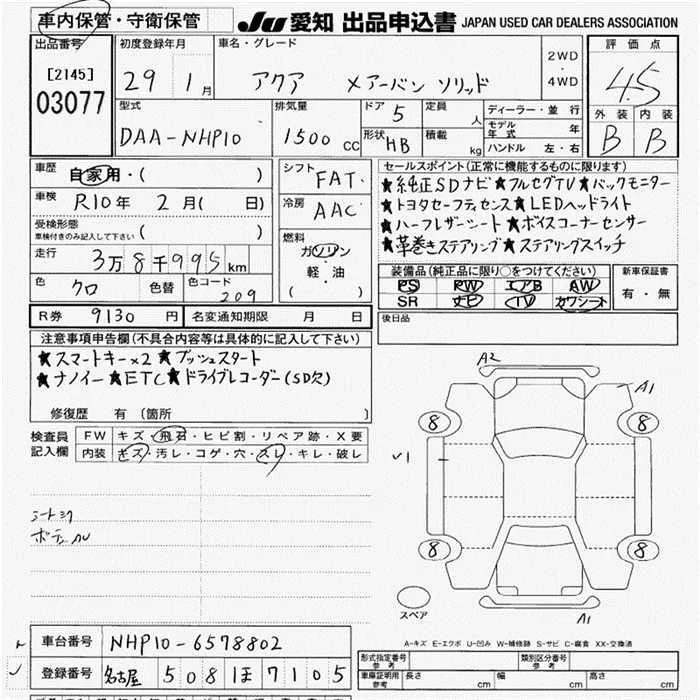 車内保管・守衛保管
JU 愛知 出品申込書 JAPAN USED CAR DEALERS ASSOCIATION
出品番号 初度登録年月 車名・グレード 評価点
[2145] 29 1月 アクア X アーバン ソリッド 2WD・4WD 4.5
03077
型式 排気量 ドア 5 定員 人 ディーラー・並行 外装 内装
DAA-NHP10 1500 CC 形状 HB 積載 kg モデル年式 年 B B
ハンドル 左・右
車歴 自家用・( ) シフト FAT セールスポイント(正常に機能するものに限ります)
車検 R10年 2月( 日) 冷房 AAC ★純正SDナビ★フルセグTV★バックモニター
受検形態 ★トヨタセーフティセンス★LEDヘッドライト
車検付きのみ記入して下さい ( ) ★ハーフレザーシート★ボイスコーナーセンサー
走行 3万8千995km 燃料 ガソリン・軽・油 ( ) ★革巻きステアリング★ステアリングスイッチ
色 クロ 色替 色コード 209 装備品(純正品に限り○をつけてください) 新車保証書
PS PW エアB AW 有・無
SR ナビ TV カワシート
R券 9130円 名変通知期限 月 日 後日品
注意事項申告欄(不具合内容等は具体的に記入して下さい)
★スマートキー×2 ★プッシュスタート
★ナノイー★ETC★ドライブレコーダー(SD欠)
修復歴 有 〔箇所 〕
検査員記入欄 FW キズ・飛石・ヒビ割・リペア跡・X要
内装 キズ・汚レ・コゲ・穴・スレ・キレ・破レ
A2
A1
8 8
✓1
8 8
シートスレ
スペア
A1
A-キズ E-エクボ U-凹み W-補修跡 S-サビ C-腐食 XX-交換済
車台番号 NHP10-6578802 形式指定番号 参考 類別区分番号 参考
登録番号 名古屋 508 ほ 7105 車庫証明用 参考 長さ cm 幅 cm 高さ cm